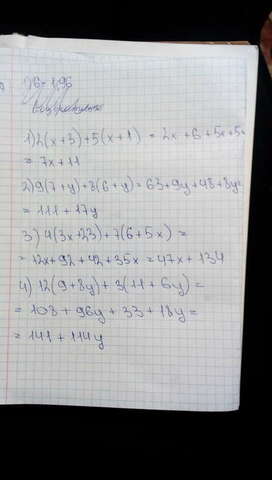 1) 2(x+3)+5(x+1) = 2x+6+5x+5=
= 7x+11
2) 9(7+y)+8(6+y)=63+9y+48+8y=
= 111+17y
3) 4(3x+23)+7(6+5x) =
= 12x+92+42+35x=47x+134
4) 12(9+8y)+3(11+6y)=
= 108+96y+33+18y=
= 141+114y